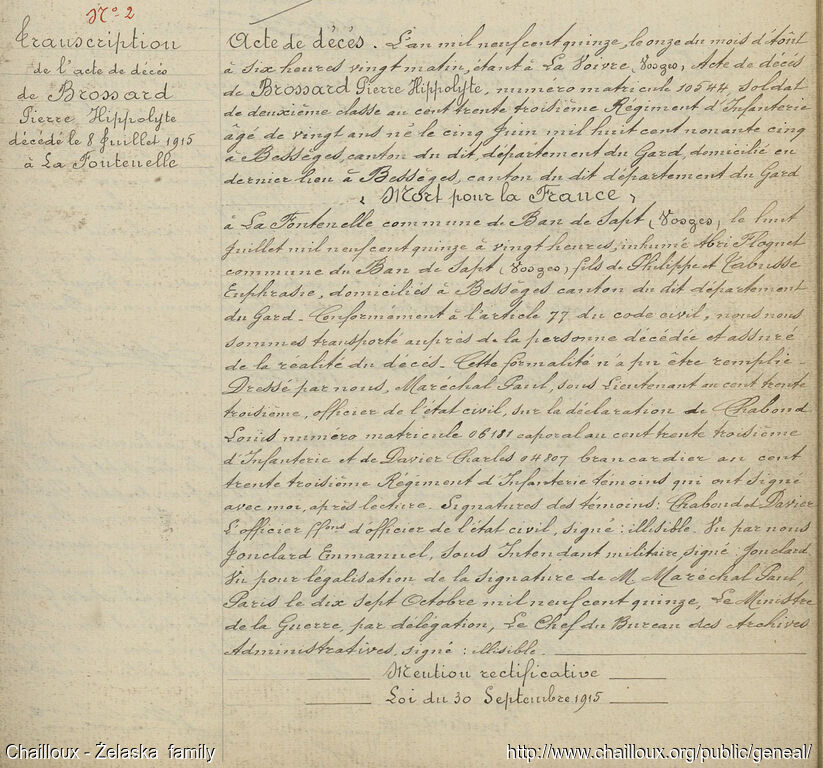 N° 2
Transcription
de l'acte de décès
de Brossard
Pierre Hippolyte
décédé le 8 Juillet 1915
à La Fontenelle
Acte de décès. L'an mil neuf cent quinze, le onze du mois d'Août
à six heures vingt matin, étant à La Voivre (Vosges), Acte de décès
de Brossard Pierre Hippolyte, numéro matricule 10544, soldat
de deuxième classe au cent trente troisième Régiment d'Infanterie
âgé de vingt ans né le cinq Juin mil huit cent nonante cinq
à Bessèges, canton du dit, département du Gard, domicilié en
dernier lieu à Bessèges, canton du dit département du Gard
"Mort pour la France",
à La Fontenelle commune de Ban de Sapt (Vosges), le huit
Juillet mil neuf cent quinze à vingt heures, inhumé Abri
commune du Ban de Sapt (Vosges), fils de Philippe et Tabusse
Euphrasie, domiciliés à Bessèges canton du dit département
du Gard - Conformément à l'article 77 du code civil, nous nous
sommes transporté auprès de la personne décédée et assuré
de la réalité du décès - Cette formalité n'a pu être remplie -
Dressé par nous, Maréchal Paul, sous Lieutenant au cent trente
troisième, officier de l'état civil, sur la déclaration de Chabond
Louis numéro matricule 06181 caporal au cent trente troisième
d'Infanterie et de Davier Charles 04807 brancardier au cent
trente troisième Régiment d'Infanterie témoins qui ont signé
avec moi, après lecture. Signatures des témoins: Chabond et Davier
L'officier ffons d'officier de l'état civil, signé: illisible. Vu par nous
Jonclard Emmanuel, sous Intendant militaire, signé: Jonclard
Vu pour légalisation de la signature de M. Maréchal Paul,
Paris le dix sept Octobre mil neuf cent quinze, Le Ministre
de la Guerre, par délégation, Le Chef du Bureau des Archives
Administratives, signé: illisible.
Mention rectificative
Loi du 30 Septembre 1915
Chailloux - Želaska family
http://www.chailloux.org/public/geneal/